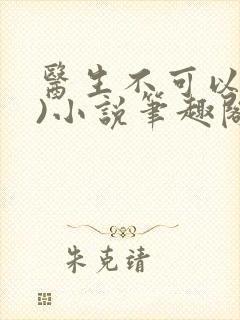 醫生不可以
)小說筆趣閣
朱克靖